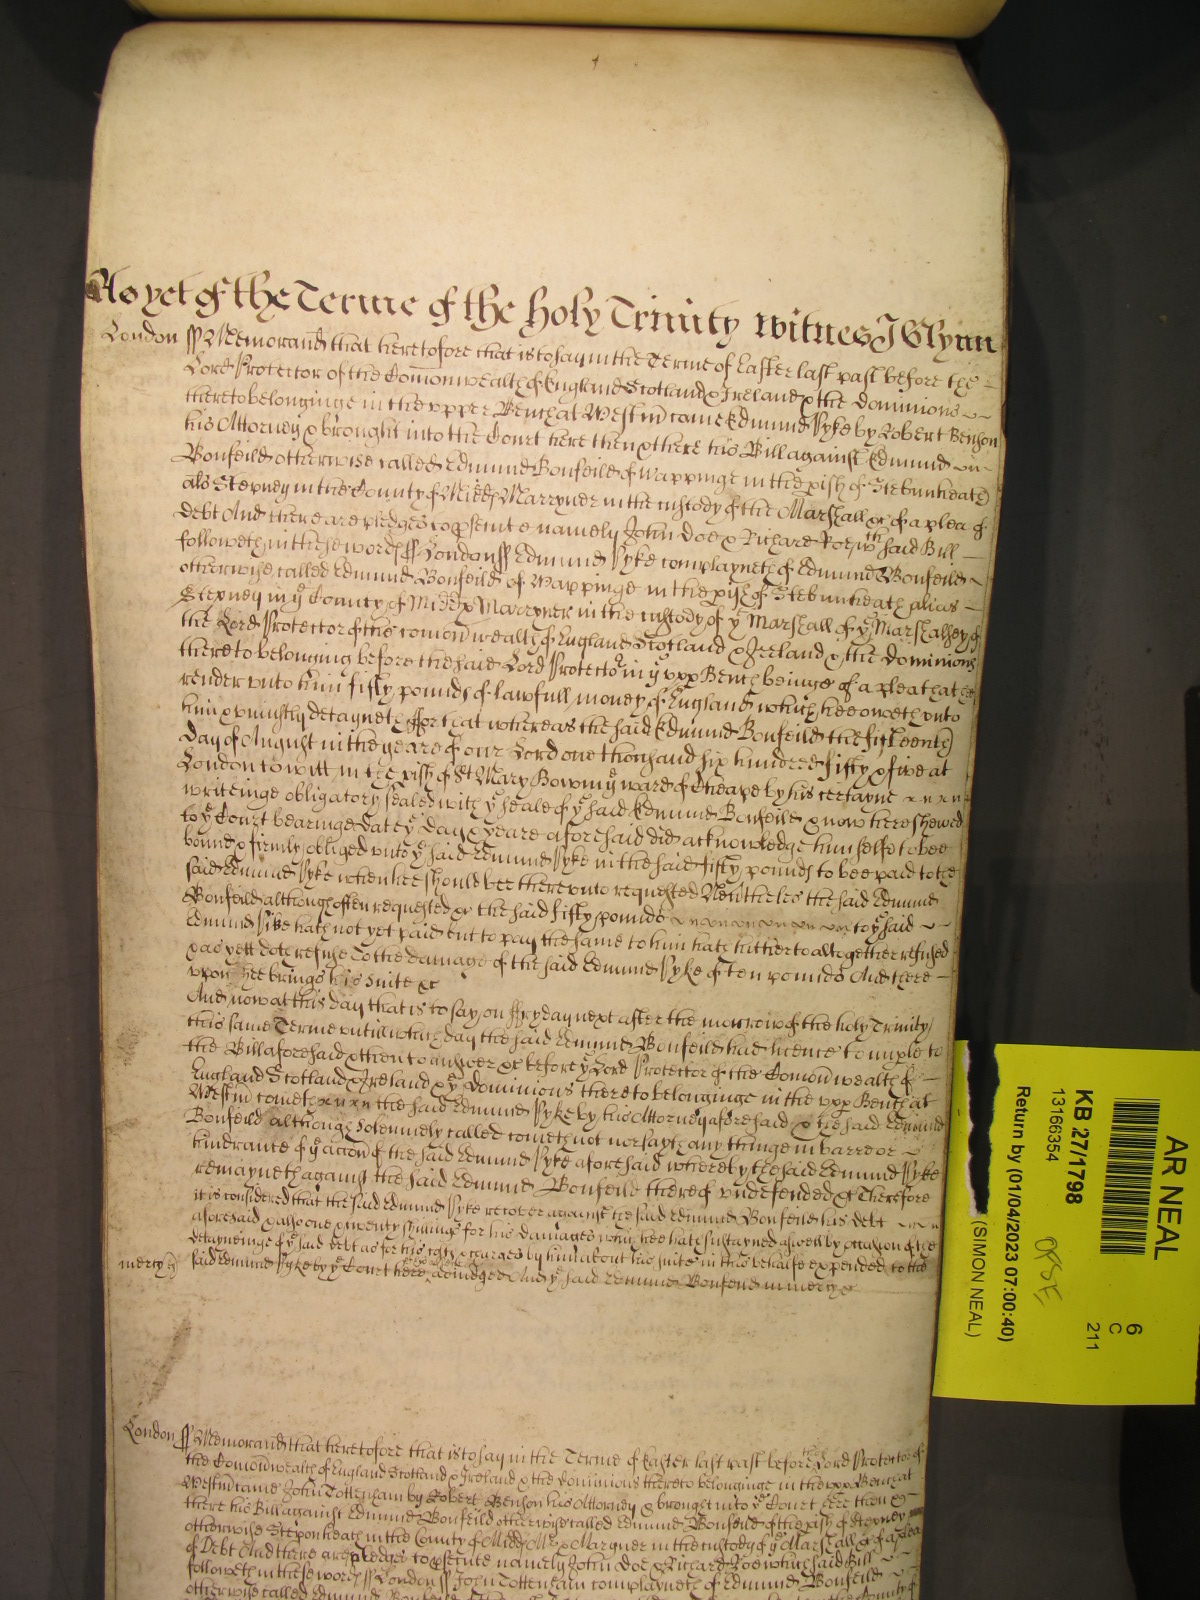 As yet of the Terme of the holy Trinity witnes J Glynn
London ss Memorand that heretofore that is to say in the Terme of Easter last past before the
Lord Protector of the Comonwealth of England Scotland & Ireland & the dominions
thereto belonginge in the upper Bench at Westm came Edmund Syke by Robert Benson
his Attorney & brought into the Court here then & there his Bill against Edmund
Bonfeild otherwise called Edmund Bonfeild of Wappinge in the pish of Stebunheath
als Stepney in the County of Midd Marryner in the custody of the Marshall &c of a plea of
debt And there are pledges to psecute namely John Doe & Richard Roe wch said Bill
followeth in these words ss London ss Edmund Syke complayneth of Edmund Bonfeild
otherwise called Edmund Bonfeild of Wappinge in the pish of Stebunheath alias
Stepney in ye County of Midd Marryner in the custody of ye Marshall of ye Marshalsey of
the Lord Protector of the comonwealth of England Scotland & Ireland & the dominions
thereto belonging before the said Lord Protector in ye upp Bench beinge of a plea that he
render unto him fifty pounds of lawfull money of England which hee oweth unto
him & uniustly detayneth ffor that whereas the said Edmund Bonfeild the fifteenth
day of August in the yeare of our Lord one thousand six hundred fifty & five at
London to witt in the pish of St Mary Bow in ye ward of Cheape by his certayne
writeinge obligatory sealed with ye seale of ye said Edmund Bonfeild & now here shewed
to ye Court bearinge date ye day & yeare aforesaid did acknowledge himselfe to bee
bound & firmly obliged unto ye said Edmund Syke in the said fifty pounds to bee paid to the
said Edmund Syke when hee should bee thereunto requested Nevtheles the said Edmund
Bonfeild although often requested &c the said fifty pounds to ye said
Edmund Syke hath not yet paid but to pay the same to him hath hitherto altogether refused
& as yett doth refuse To the damage of the said Edmund Syke of ten pounds And there
upon hee brings his suite &c
And now at this day that is to say on ffryday next after the morrow of the holy Trinity
this same Terme untill which day the said Edmund Bonfeild had licence to imple to
the Bill aforesaid & then to answer &c before ye Lord Protector of the Comonwealth of
England Scotland & Ireland & ye dominions thereto belonginge in the upp Bench at
Westm cometh the said Edmund Syke by his Attorney aforesaid & the said Edmund
Bonfeild although solemnely called cometh not nor sayth any thinge in barre or
hindrance of ye accon of the said Edmund Syke aforesaid whereby the said Edmund Syke
remayneth against the said Edmund Bonfeild thereof undefended &c Therefore
it is considered that the said Edmund Syke recover against the said Edmund Bonfeild his debt
aforesaid & also one & twenty shillings for his damages which hee hath sustayned aswell by occasion of the
detayneinge of ye said debt as for his costs & charges by him about his suite in this behalfe expended to the
mercy
said Edmund Syke by ye Court here adiudged And ye said Edmund Bonfeild in mercy &c
London ss Memorand that heretofore that is to say in the Terme of Easter last past before the Lord Protector of
the Comonwealth of England Scotland & Ireland & the dominions thereto belonginge in the upp Bench at
Westm came John Tottenham by Robert Benson his Attorney & brought into ye Court here then &
there his Bill against Edmund Bonfeild otherwise called Edmund Bonfeild of the pish of Stepney
otherwise Steponheath in the County of Midd Maryner in the custody of ye Marshall &c of a plea
of Debt And there are pledges to psecute namely John Doe & Richard Roe which said Bill
followeth in these words ss London ss John Tottenham complayneth of Edmund Bonfeild
otherwise called Edmund Bonfeild
AR NEAL
6
C
211
KB 27/1798
13166354
Return by (01/04/2023 07:00:40)
(SIMON NEAL)